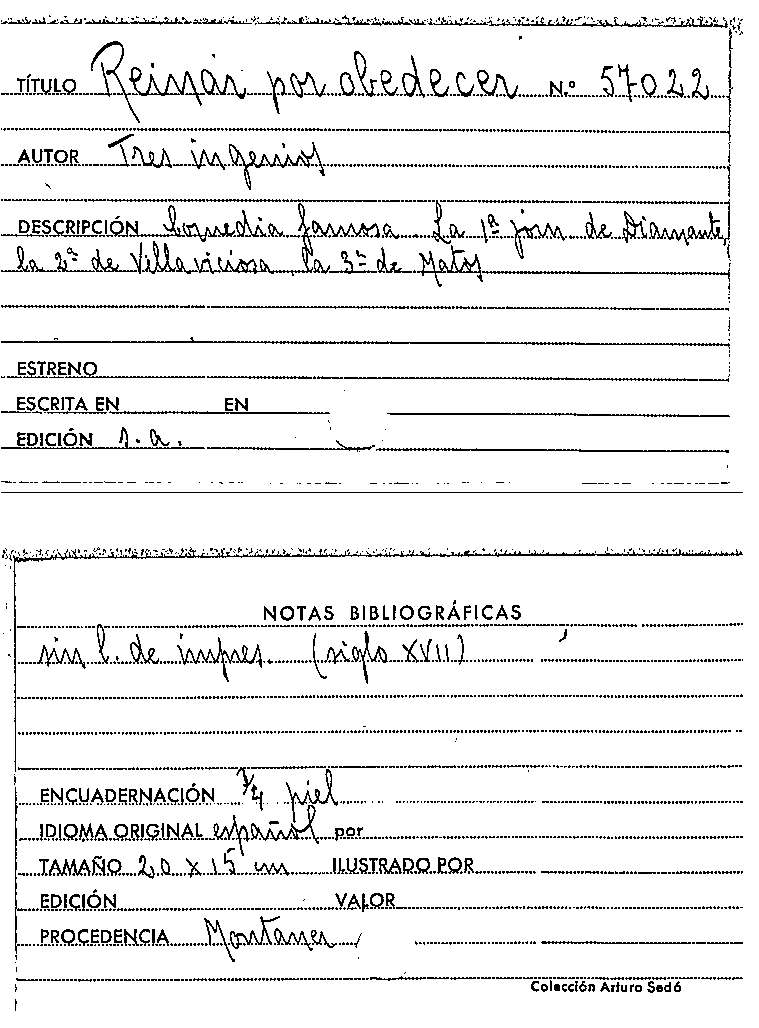 TÍTULO Reinar por obedecer N.º 57022
AUTOR Tres ingenios
DESCRIPCIÓN Comedia famosa. La 1ª jorn. de Diamante,
la 2ª de Villaviciosa, la 3ª de Matos
ESTRENO
ESCRITA EN EN
EDICIÓN s.a.
NOTAS BIBLIOGRÁFICAS
sin l. de impres. (siglo XVII)
ENCUADERNACIÓN ¾ piel
IDIOMA ORIGINAL español por
TAMAÑO 20 x 15 cm ILUSTRADO POR
EDICIÓN VALOR
PROCEDENCIA Montaner
Colección Arturo Sedó